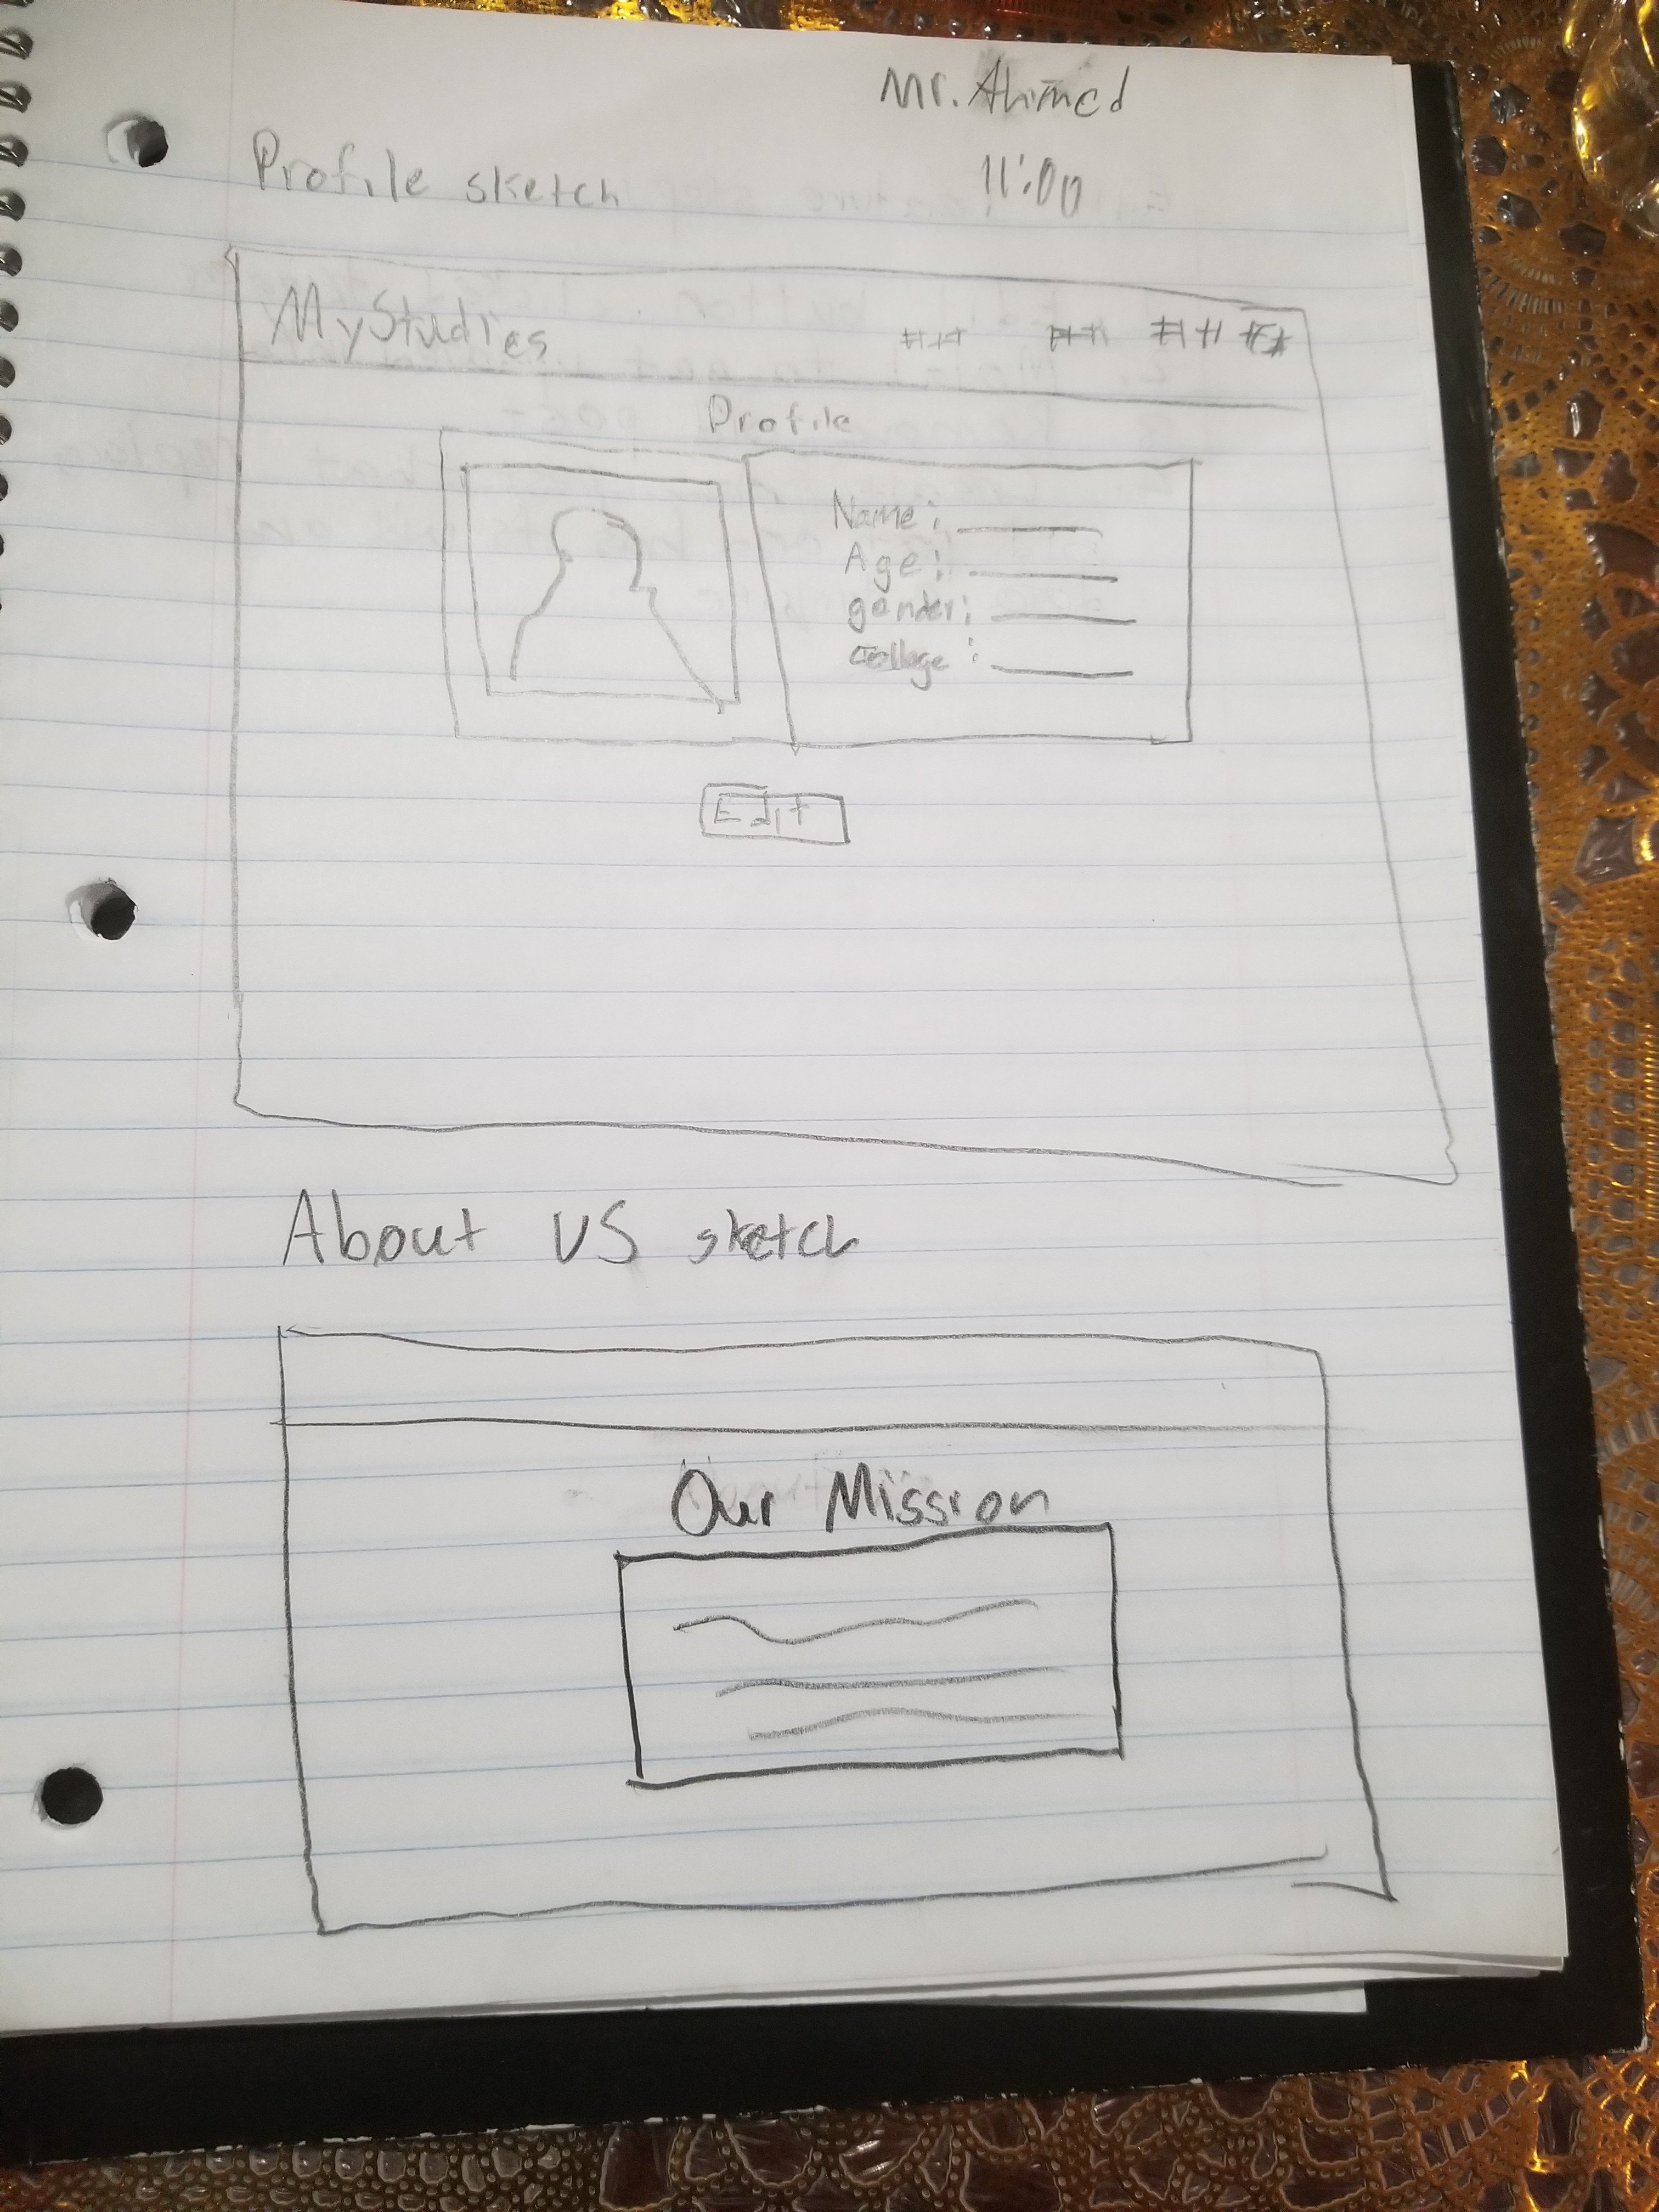 Mr. Ahmed
11:00
Profile sketch
MyStudies ### ### ### ##
Profile
Name:
Age:
gender:
Collage:
Edit
About US sketch
Our Mission